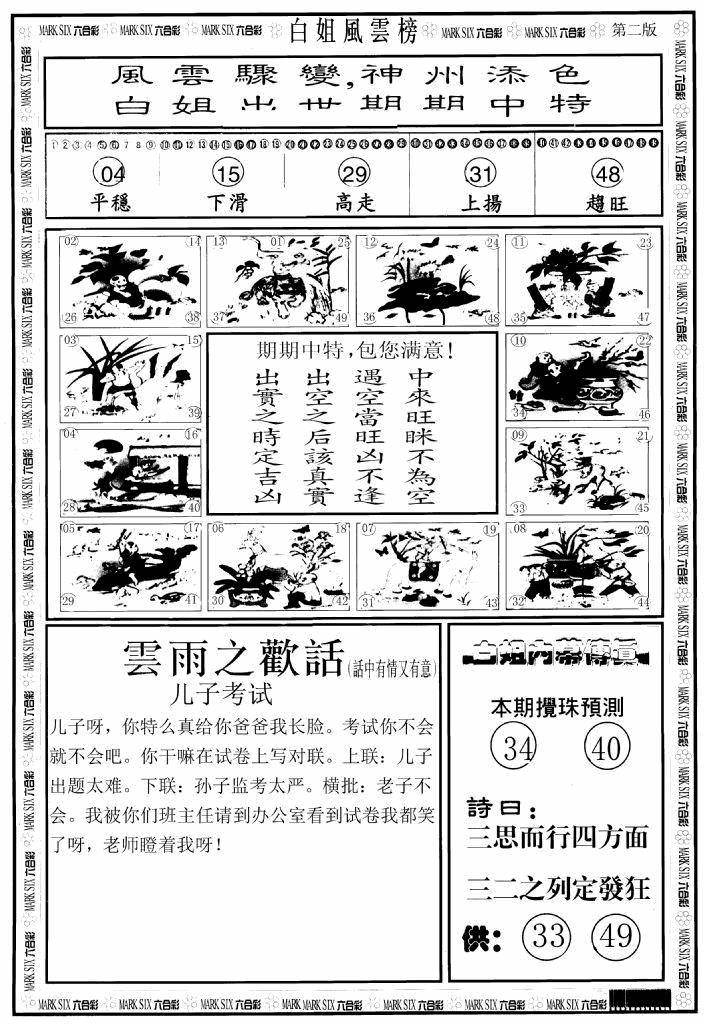 MARK SIX 六合彩 MARK SIX 六合彩 白姐風雲榜 MARK SIX 六合彩 MARK SIX 六合彩 第二版
風雲驟變,神州添色
白姐出世期期中特
04 15 29 31 48
平穩 下滑 高走 上揚 趨旺
02 14 26 38
13 01 25 37 49
12 24 36 48
11 23 35 47
03 15 27 39
10 22 34 46
04 16 28 40
09 21 33 45
05 17 29 41
06 18 30 42
07 19 31 43
08 20 32 44
期期中特,包您满意!
中來旺眯不為空
遇空當旺凶不逢
出空之后該真實
出實之時定吉凶
雲雨之歡話(話中有情又有意)
儿子考试
儿子呀，你特么真给你爸爸我长脸。考试你不会
就不会吧。你干嘛在试卷上写对联。上联：儿子
出题太难。下联：孙子监考太严。横批：老子不
会。我被你们班主任请到办公室看到试卷我都笑
了呀，老师瞪着我呀！
白姐内幕傳真
本期攪珠預測
34 40
詩曰：
三思而行四方面
三二之列定發狂
供： 33 49
MARK SIX 六合彩 MARK SIX 六合彩 MARK SIX 六合彩 MARK SIX 六合彩 MARK SIX 六合彩 MARK SIX 六合彩 MARK SIX 六合彩